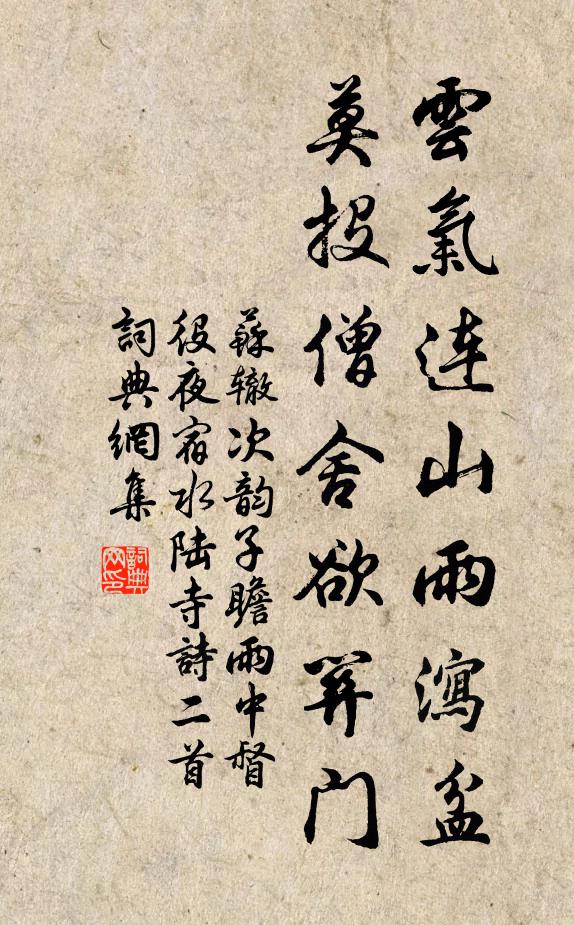 雲氣连山雨瀉盆
莫投僧舍欲关门
蘇辙次韵子瞻雨中督
役夜宿水陆寺詩二首
詞典網集
詞典网印